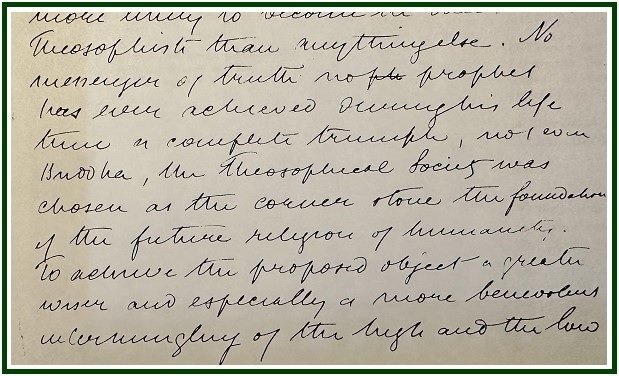 more likely to become
Theosophists than anything else. No
messenger of truth no prophet
has ever achieved during his life
time a complete triumph, not even
Buddha, the Theosophical Society was
chosen as the corner stone the foundation
of the future religion of humanity.
To achieve the proposed object a greater
wiser and especially a more benevolent
intermingling of the high and the low